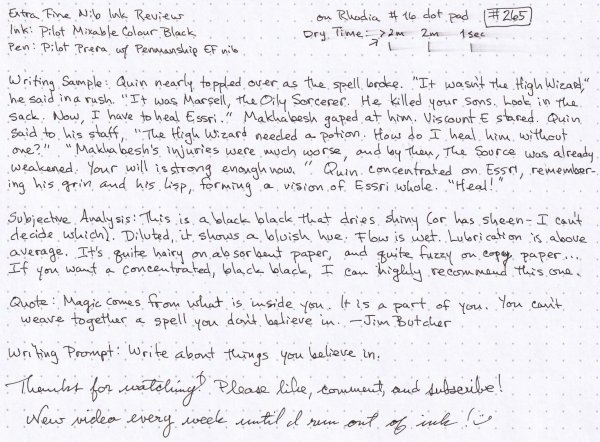 Extra Fine Nib Ink Review
on Rhodia #16 dot pad #265
Ink: Pilot Mixable Colour Black
Dry Time: >2m 2m 1sec
Pen: Pilot Prera w/ Penmanship EF nib
Writing Sample: Quin nearly toppled over as the spell broke. "It wasn't the High Wizard,"
he said in a rush. "It was Marsell, the Oily Sorcerer. He killed your sons. Look in the
sack. Now, I have to heal Essri." Makhabesh gaped at him. Viscount E stared. Quin
said to his staff, "The High Wizard needed a potion. How do I heal him without
one?" "Makhabesh's injuries were much worse, and by then, The Source was already
weakened. Your will is strong enough now." Quin concentrated on Essri, remember-
ing his grin and his lisp, forming a vision of Essri whole. "Heal!"
Subjective Analysis: This is a black black that dries shiny (or has sheen - I can't
decide which). Diluted, it shows a bluish hue. Flow is wet. Lubrication is above
average. It's quite hairy on absorbent paper, and quite fuzzy on copy paper...
If you want a concentrated, black black, I can highly recommend this one.
Quote: Magic comes from what is inside you. It is a part of you. You can't
weave together a spell you don't believe in. —Jim Butcher
Writing Prompt: Write about things you believe in.
Thanks for watching! Please like, comment, and subscribe!
New video every week until I run out of ink!